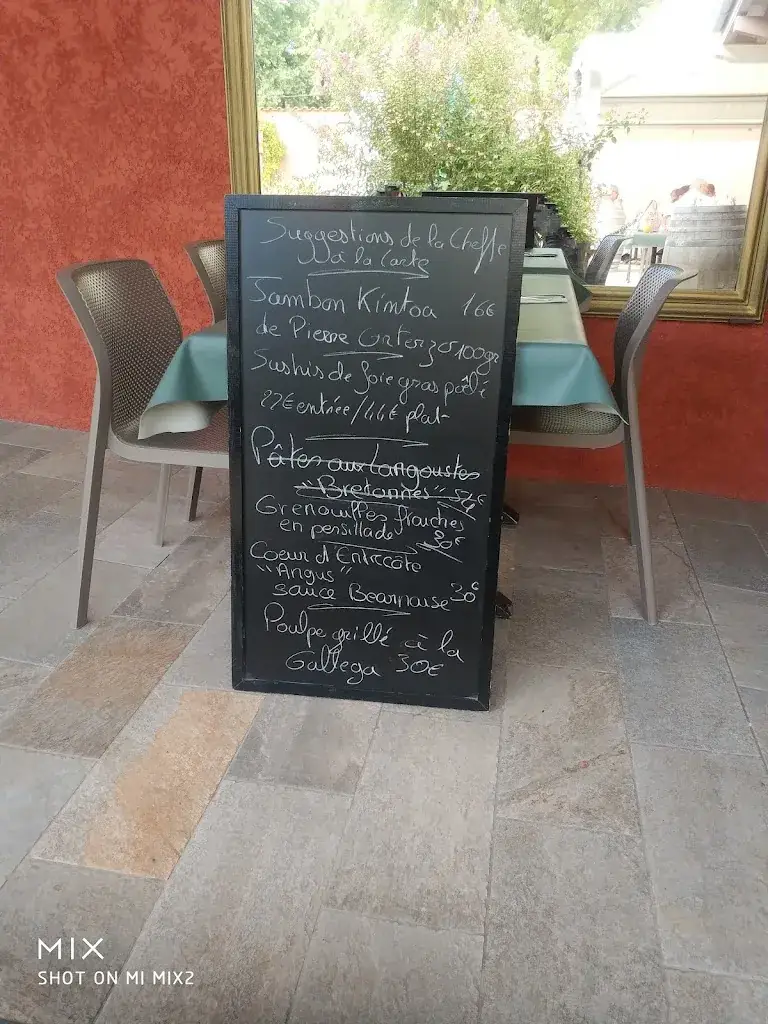 Suggestions de la Cheffe
à la Carte
Jambon Kintoa 16€
de Pierre Oteiza 100gr
Sushis de foie gras poêlé
22€ entrée/44€ plat
Pâtes aux Langoustes
"Bretonnes"
Grenouilles fraîches
en persillade 30€
Coeur d'Entrecôte
"Angus"
sauce Bearnaise 30€
Poulpe grillé à la
Gallega 30€
MIX
SHOT ON MI MIX2